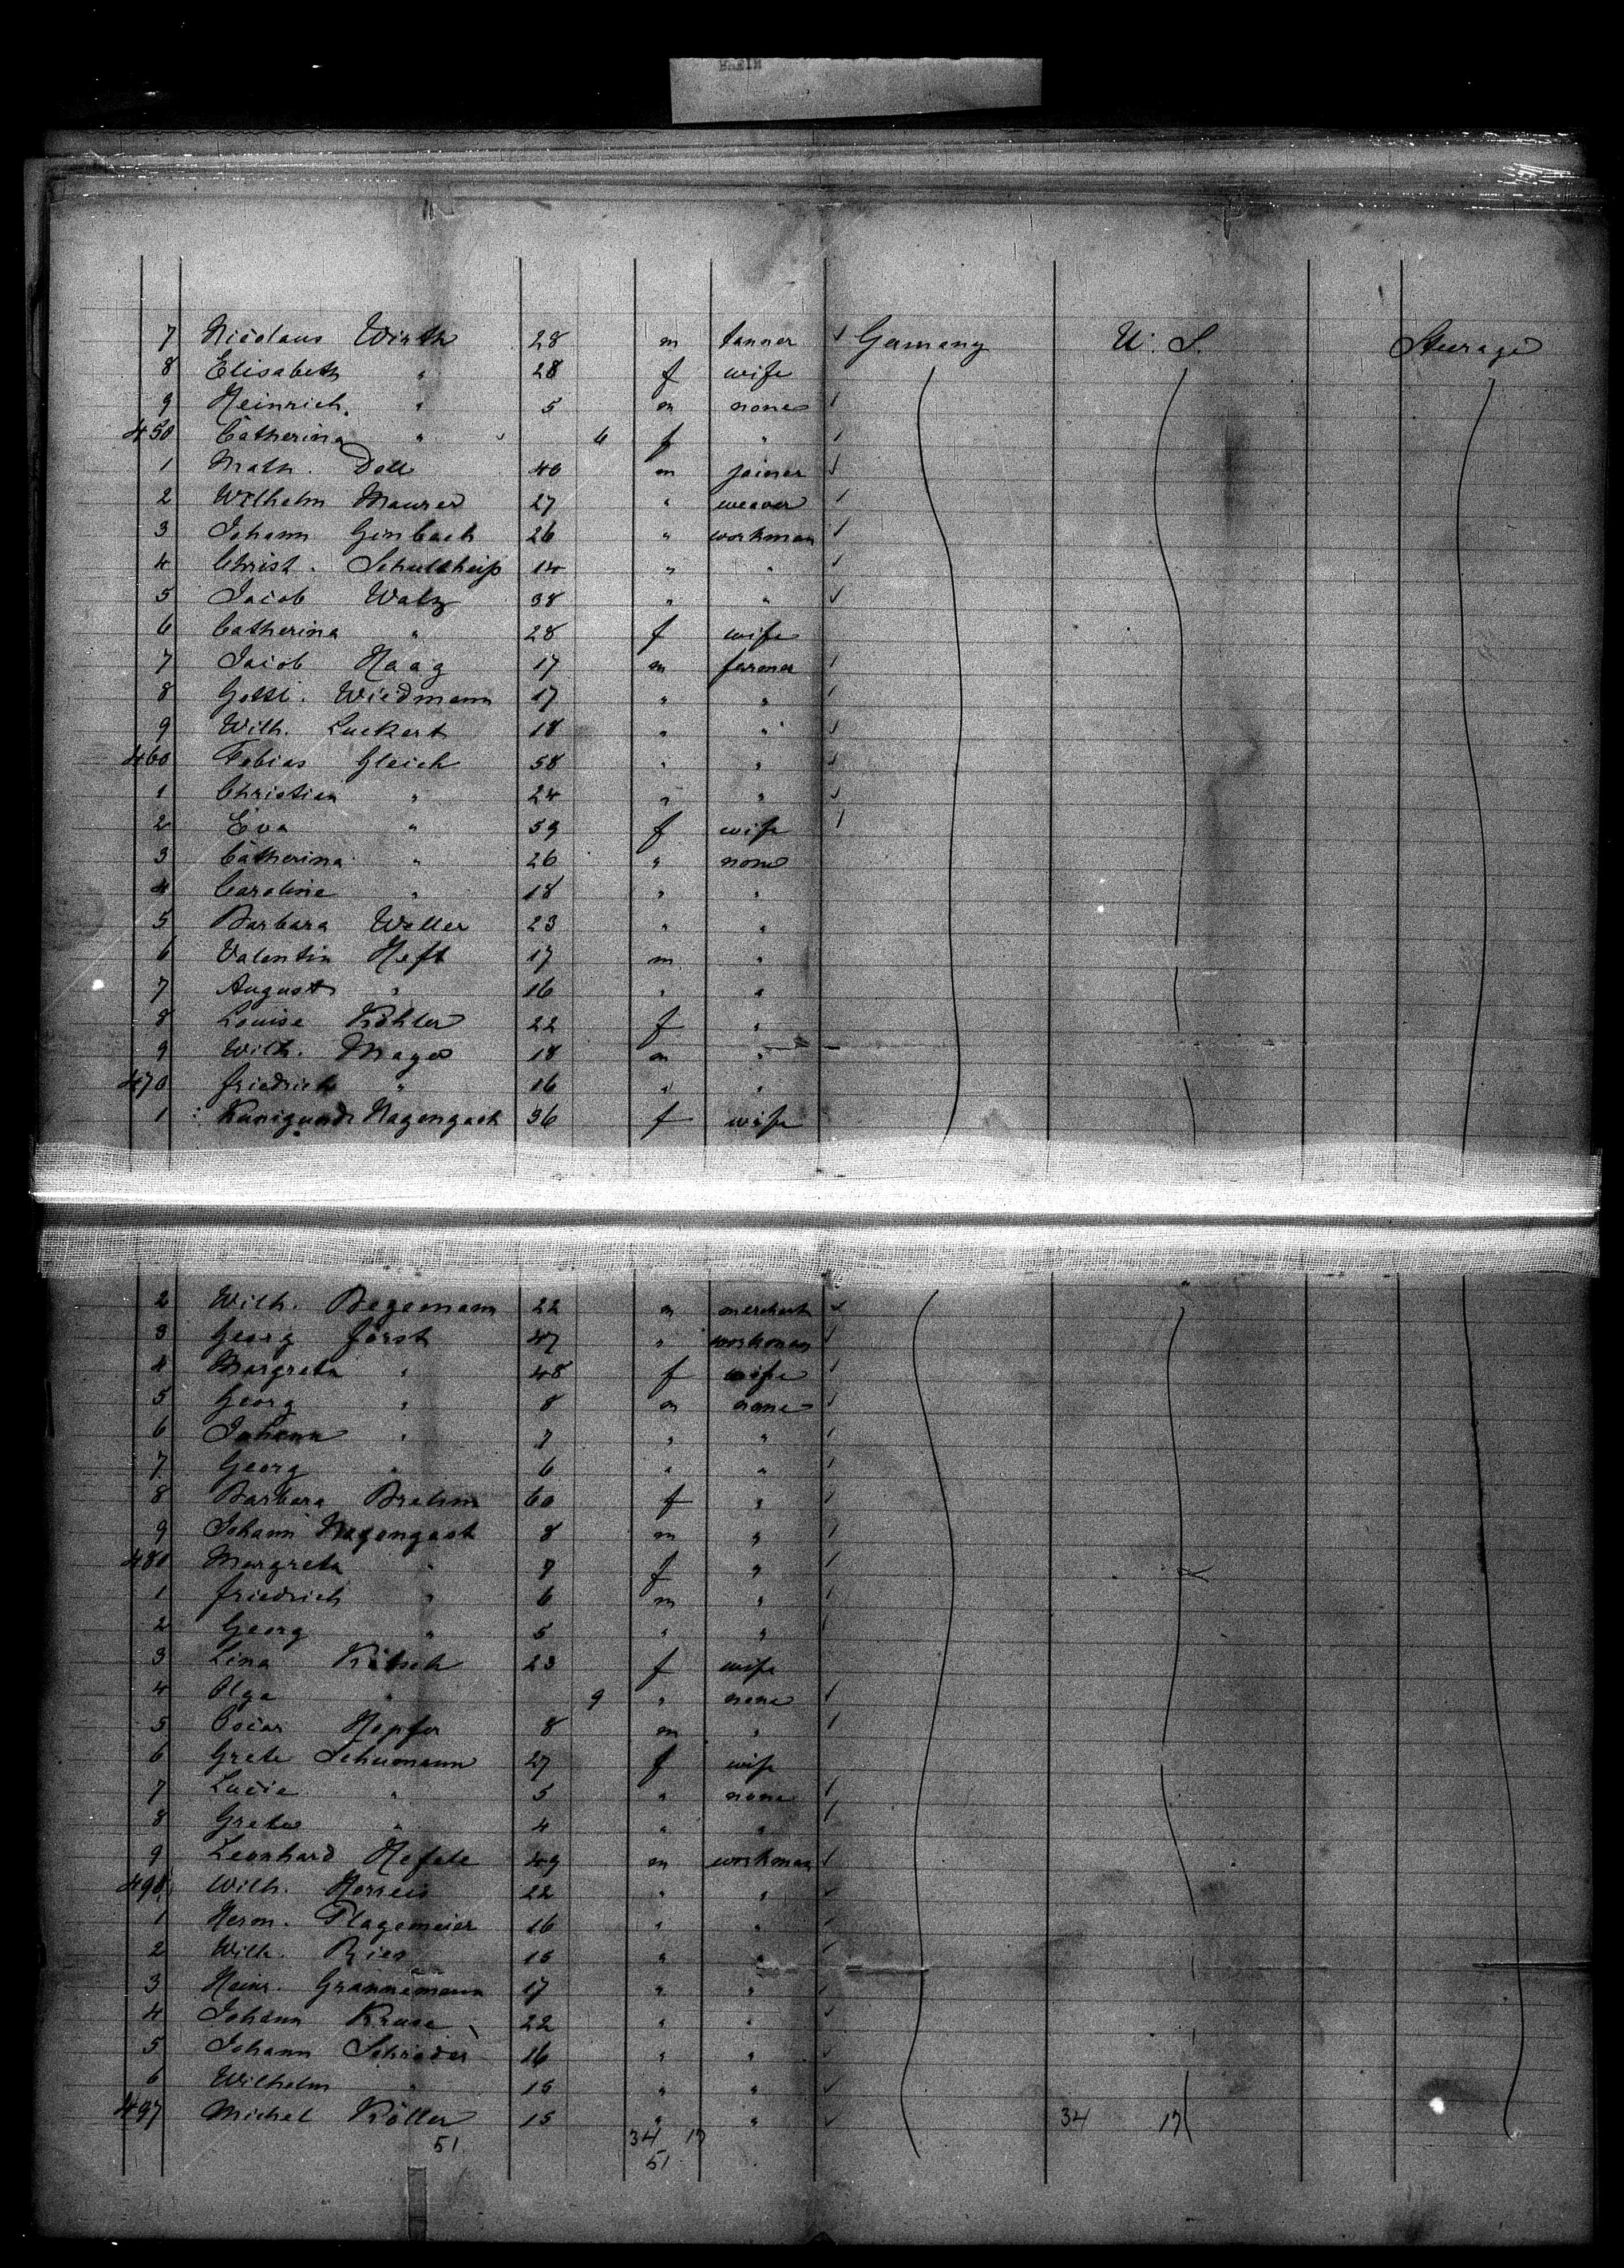 7 Nicolaus Wirth 28 m tanner ✓ Germany U. S. Steerage
8 Elisabeth " 28 f wife
9 Heinrich " 5 m none
450 Catherina " 6 f "
1 Math. Doll 40 m joiner
2 Wilhelm Maurer 27 " weaver
3 Johann Ginbach 26 " workman
4 Christ. Schultheiß 14 " "
5 Jacob Walz 38 " "
6 Catherina " 28 f wife
7 Jacob Haag 17 m farmer
8 Gottl. Wiedmann 17 " "
9 Wilh. Luckert 18 " "
460 Tobias Gleich 58 " "
1 Christian " 24 " "
2 Eva " 59 f wife
3 Catherina " 26 " none
4 Caroline " 18 " "
5 Barbara Weller 23 " "
6 Valentin Heft 17 m "
7 August " 16 " "
8 Louise Köhler 22 f "
9 Wilh. Mayer 18 m "
470 Friedrich " 16 " "
1 Kunigunde Nagengast 36 f wife
2 Wilh. Begemann 22 m merchant
3 Georg Först 47 " workman
4 Margreta " 48 f wife
5 Georg " 8 m none
6 Johann " 7 " "
7 Georg " 6 " "
8 Barbara Brehm 60 f "
9 Johann Nagengast 8 m "
480 Margreta " 7 f "
1 Friedrich " 6 m "
2 Georg " 5 " "
3 Lina 23 f wife
4 Olga " 9 " none
5 Oscar Hopfer 8 m "
6 Grete Schumann 27 f wife
7 Lucie " 5 " none
8 Grete " 4 " "
9 Leonhard Hefele 49 m workman
490 Wilh. 22 " "
1 Herm. Flagemeier 16 " "
2 Wilh. Ries 15 " "
3 Heinr. Grannemann 17 " "
4 Johann Kruse 22 " "
5 Johann Schröder 16 " "
6 Wilhelm " 15 " "
497 Michel Köller 15 " " 34 17
51 34 17
51